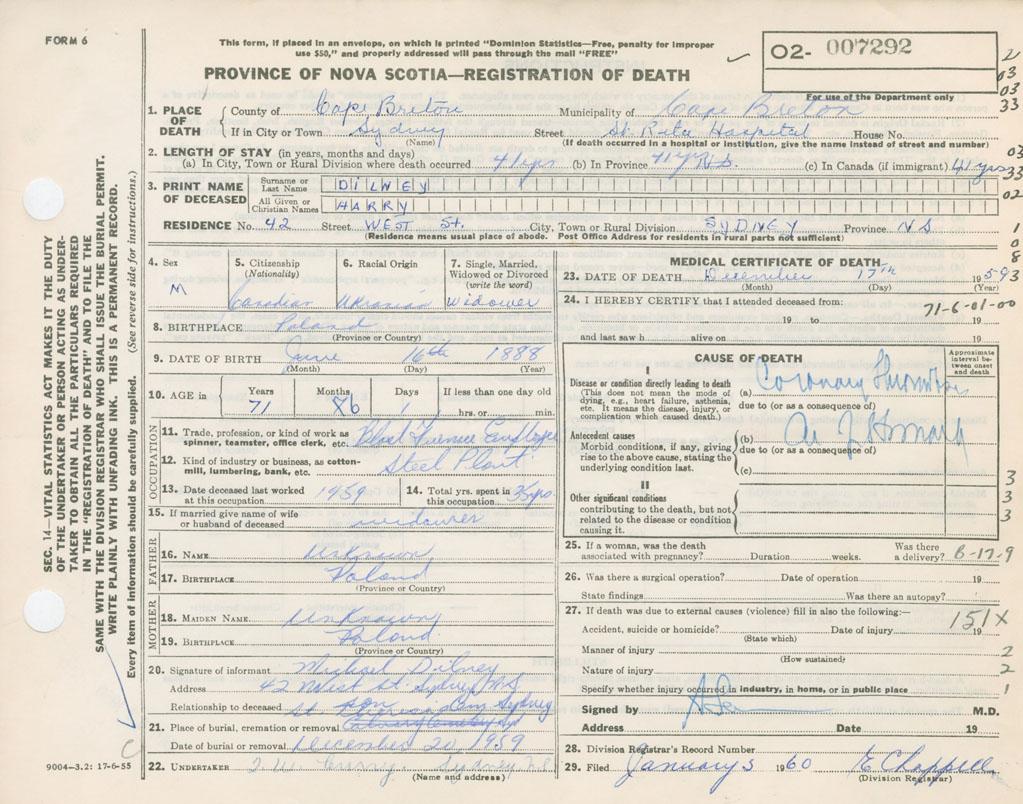 FORM 6
This form, if placed in an envelope, on which is printed "Dominion Statistics—Free, penalty for improper
use $50," and properly addressed will pass through the mail "FREE"
O2- 007292
For use of the Department only
PROVINCE OF NOVA SCOTIA—REGISTRATION OF DEATH
2
03
03
33
1. PLACE OF DEATH
County of Cape Breton Municipality of Cape Breton
If in City or Town Sydney Street St. Rita Hospital House No.
(Name) (If death occurred in a hospital or institution, give the name instead of street and number)
2. LENGTH OF STAY (in years, months and days)
(a) In City, Town or Rural Division where death occurred 41 yrs (b) In Province 41 yrs N.S. (c) In Canada (if immigrant) 41 yrs
03
33
02
3. PRINT NAME OF DECEASED
Surname or Last Name DILNEY
All Given or Christian Names HARRY
RESIDENCE No. 42 Street WEST St. City, Town or Rural Division SYDNEY Province NS
(Residence means usual place of abode. Post Office Address for residents in rural parts not sufficient)
1
0
8
3
4. Sex M
5. Citizenship (Nationality) Canadian
6. Racial Origin Ukranian
7. Single, Married, Widowed or Divorced (write the word) Widower
8. BIRTHPLACE Poland
(Province or Country)
9. DATE OF BIRTH June 16th 1888
(Month) (Day) (Year)
10. AGE in Years Months Days If less than one day old
71 6 1 hrs. or min.
OCCUPATION
11. Trade, profession, or kind of work as spinner, teamster, office clerk, etc. Blast Furnace Employee
12. Kind of industry or business, as cotton-mill, lumbering, bank, etc. Steel Plant
13. Date deceased last worked at this occupation 1959
14. Total yrs. spent in this occupation 35 yrs
15. If married give name of wife or husband of deceased widower
FATHER
16. NAME Unknown
17. BIRTHPLACE Poland
(Province or Country)
MOTHER
18. MAIDEN NAME Unknown
19. BIRTHPLACE Poland
(Province or Country)
20. Signature of informant Michael Dilney
Address 42 West St. Sydney N.S
Relationship to deceased son
21. Place of burial, cremation or removal St Theresia Cem Sydney
Date of burial or removal December 20, 1959
22. UNDERTAKER Sydney N.S
(Name and address)
MEDICAL CERTIFICATE OF DEATH
23. DATE OF DEATH December 17th 1959
(Month) (Day) (Year)
24. I HEREBY CERTIFY that I attended deceased from:
71-6-01-00
19 to 19
and last saw h alive on 19
CAUSE OF DEATH
Approximate interval between onset and death
I
Disease or condition directly leading to death
(This does not mean the mode of dying, e.g., heart failure, asthenia, etc. It means the disease, injury, or complication which caused death.)
(a) Coronary Thrombosis
due to (or as a consequence of)
Antecedent causes
Morbid conditions, if any, giving rise to the above cause, stating the underlying condition last.
(b) Ca of Stomach
due to (or as a consequence of)
(c)
II
Other significant conditions
contributing to the death, but not related to the disease or condition causing it.
3
3
3
25. If a woman, was the death associated with pregnancy? Duration weeks. Was there a delivery?
B-17-9
26. Was there a surgical operation? Date of operation 19
State findings Was there an autopsy?
27. If death was due to external causes (violence) fill in also the following:—
151X
Accident, suicide or homicide? Date of injury 19
(State which)
Manner of injury 2
(How sustained)
Nature of injury 2
Specify whether injury occurred in industry, in home, or in public place 1
Signed by M.D.
Address Date 19
28. Division Registrar's Record Number
29. Filed January 5 1960 E Chappell
(Division Registrar)
SEC. 14—VITAL STATISTICS ACT MAKES IT THE DUTY
OF THE UNDERTAKER OR PERSON ACTING AS UNDER-
TAKER TO OBTAIN ALL THE PARTICULARS REQUIRED
IN THE "REGISTRATION OF DEATH" AND TO FILE THE
SAME WITH THE DIVISION REGISTRAR WHO SHALL ISSUE THE BURIAL PERMIT.
WRITE PLAINLY WITH UNFADING INK. THIS IS A PERMANENT RECORD.
Every item of information should be carefully supplied. (See reverse side for instructions.)
C
9004—3.2: 17-6-55